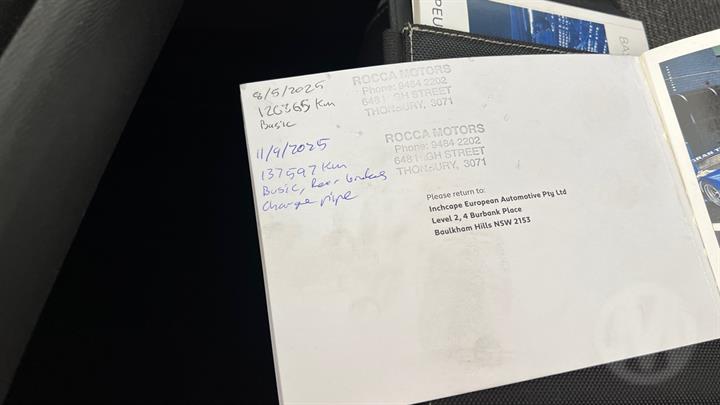 8/5/2025
126365 Km
Basic
ROCCA MOTORS
Phone: 9484 2202
648 HIGH STREET
THORNBURY, 3071
11/9/2025
137597 Km
Basic, Rear brakes
Charge pipe
ROCCA MOTORS
Phone: 9484 2202
648 HIGH STREET
THORNBURY, 3071
Please return to:
Inchcape European Automotive Pty Ltd
Level 2, 4 Burbank Place
Baulkham Hills NSW 2153
PEU
M